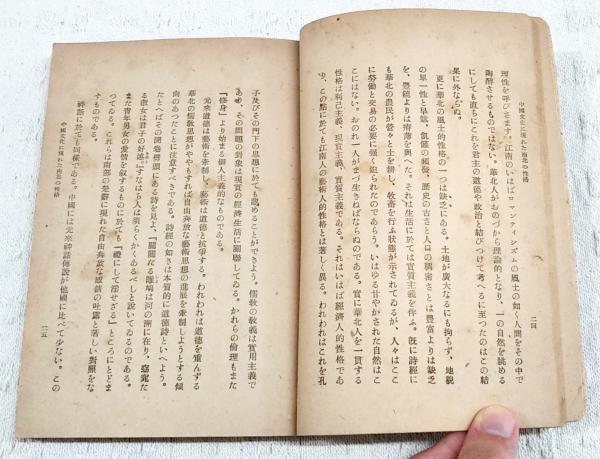 中國文化に現れた南北の性格
二四
理性を呼びさます。江南のいはばロマンティシズムの風土の如く人間をその中で
陶醉させるものではない。華北人がおのづから理論的となり、一の自然を眺める
にしても直ちにこれを君主の道德や政治と結びつけて考へるに至つたのはこの結
果に外ならぬ。
更に華北の風土的性格の一つは缺乏にある。土地が廣大なるにも拘らず、地貌
の單一性と旱魃、飢饉の頻發、歷史の古さと人口の稠密さとは豐饒よりは缺乏
を、豐饒よりは瘠瘦を與へた。それは生活に於ては實質主義を伴ふ。旣に詩經に
も華北の農民が營々と土を耕し、牧畜を行ふ狀態が示されてゐるが、人々はここ
に勞働と交易の必要に强く迫られたのであらう。いはゆる甘やかされた自然はこ
こにはない。おのれ一人がまづ生きねばならぬのである。實に華北人を一貫する
性格は利己主義、現實主義、實質主義である。それはいはば經濟人的性格であ
り、この點に於ても江南人の藝術人的性格とは著しく異る。われわれはこれを孔
子及びその門下の思想に於ても認めることができよう。儒敎の敎義は實用主義で
あり、その問題の對象は現實の經濟生活に關聯してゐる。かれらの倫理もまた
「修身」より始まる個人主義的なものである。
元來道德は藝術を牽制し、藝術は道德と抗爭する。われわれは道德を重んずる
華北の儒敎思想がややもすれば自由奔放な藝術思想の進展を牽制しようとする傾
向のあつたことに注意すべきである。詩經の如きは本質的に道德詩といへよう。
例へばその開卷劈頭にある詩を見よ、「關關たる雎鳩は河の洲に在り、窈窕た
る淑女は君子の好逑」すなはち人は須らくかくあるべしと說いてゐるのである。
また靑年男女の愛情を敍するものに於ても「禮にして淫せざる」ところにとどま
つてゐる。これらは南部の楚辭に現れた自由奔放な感激の吐露と著しい對照をな
すものである。
神話に於ても同樣である。中國には元來神話傳說が他國に比べて少ない。この
中國文化に現れた南北の性格
二五